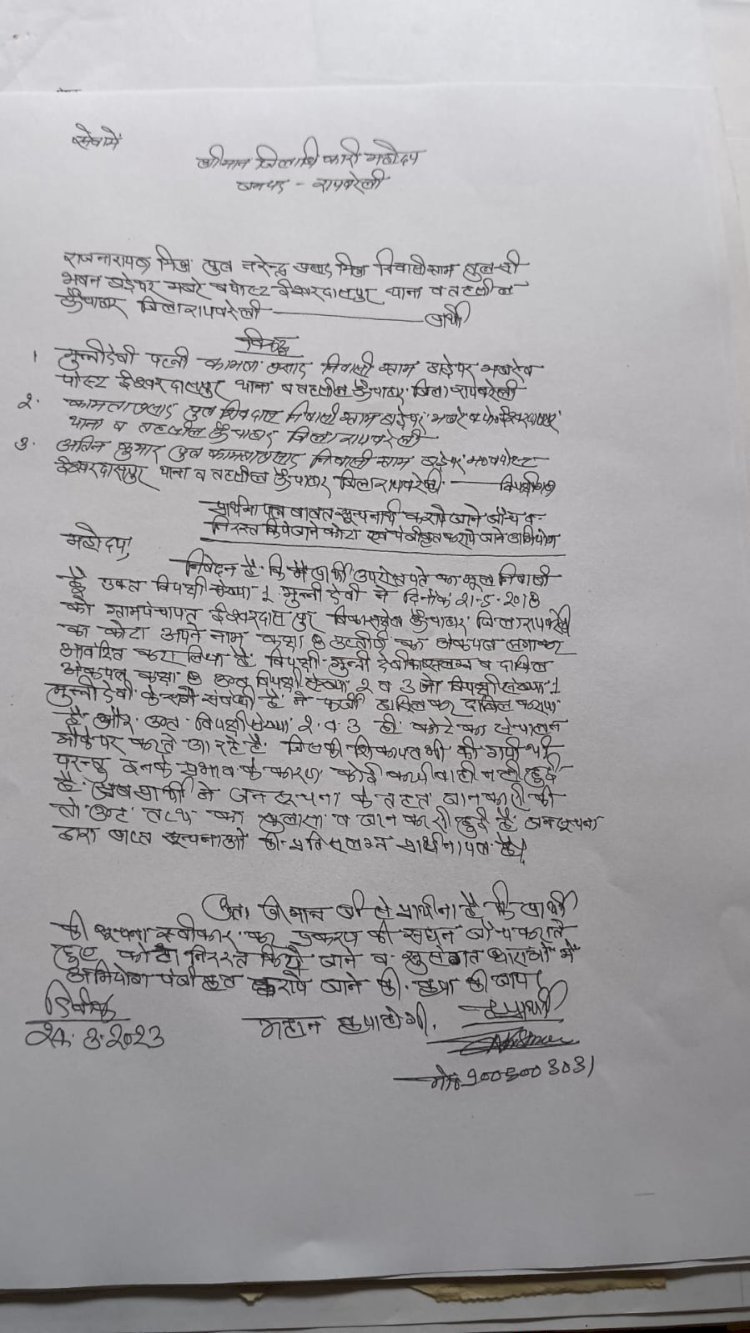 सेवामें
श्रीमान जिलाधिकारी महोदय
जनपद - रायबरेली
राजनारायण मिश्र पुत्र नरेन्द्र प्रसाद मिश्र निवासी ग्राम
भवन मजरे व पोस्ट ईश्वरदासपुर थाना व तहसील
ऊँचाहार जिला रायबरेली ——— प्रार्थी
विरुद्ध
1. मुन्नीदेवी पत्नी कामता प्रसाद निवासी ग्राम मजरे व
पोस्ट ईश्वरदासपुर थाना व तहसील ऊँचाहार जिला रायबरेली
2. कामता प्रसाद पुत्र निवासी ग्राम मजरे व
थाना व तहसील ऊँचाहार जिला रायबरेली
3. कुमार पुत्र कामता प्रसाद निवासी ग्राम
ईश्वरदासपुर थाना व तहसील ऊँचाहार जिला रायबरेली —— विपक्षीगण
प्रार्थना पत्र बावत कराये जाने जाँच व
निरस्त किये जाने कोटा एवं पंजीकृत कराये जाने अभियोग
महोदय,
निवेदन है कि मैं प्रार्थी उपरोक्त पते का मूल निवासी
हूँ उक्त विपक्षी संख्या 1 मुन्नी देवी ने दिनांक 21-5-2018
को ग्राम पंचायत ईश्वरदासपुर विकास क्षेत्र ऊँचाहार जिला रायबरेली
का कोटा अपने नाम कक्षा 8 उत्तीर्ण का अंकपत्र लगाकर
आवंटित करा लिया है विपक्षी मुन्नी देवी का व दाखिल
अंकपत्र कक्षा 8 उक्त विपक्षी संख्या 2 व 3 जो विपक्षी संख्या 1
मुन्नीदेवी के सगे संबंधी हैं ने फर्जी दाखिल कराया
है और उक्त विपक्षी संख्या 2 व 3 ही कोटे का संचालन
मौके पर करते आ रहे हैं जिसकी शिकायत भी की गयी थी
परन्तु इनके प्रभाव के कारण कोई कार्यवाही नहीं हुई
है अब प्रार्थी ने जन सूचना के तहत जानकारी की
तो उक्त तथ्य का खुलासा व जानकारी हुई है जनसूचना
द्वारा प्राप्त सूचनाओं की प्रति संलग्न प्रार्थना पत्र है।
अतः श्रीमान जी से प्रार्थना है कि प्रार्थी
की सूचना स्वीकार कर प्रकरण की सघन जाँच कराते
हुए कोटा निरस्त किये जाने व सुसंगत धाराओं में
अभियोग पंजीकृत कराये जाने की कृपा की जाय।
दिनांक महान कृपा होगी. प्रार्थी
24.8.2023